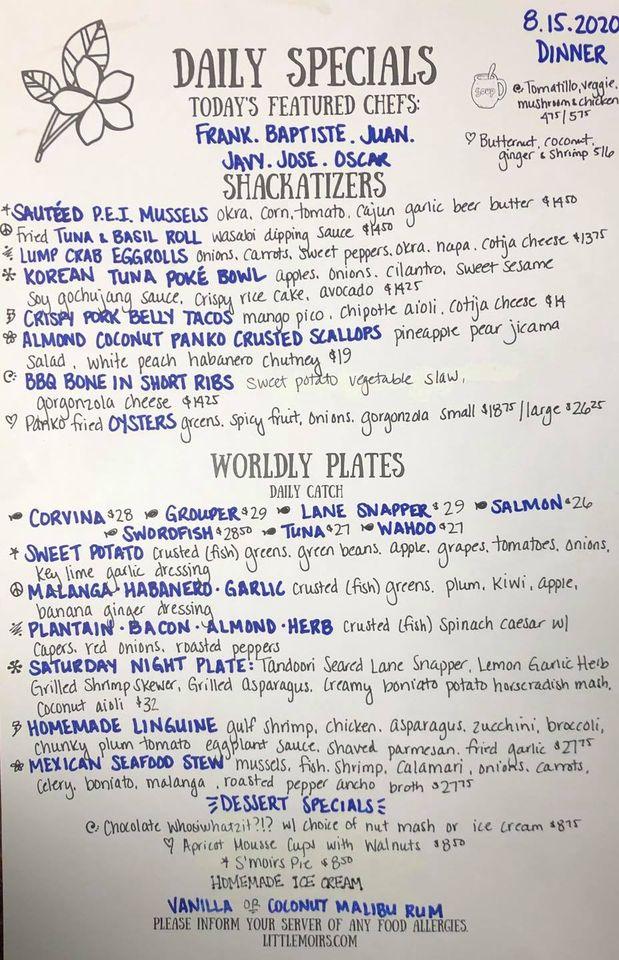 8.15.2020
DINNER
DAILY SPECIALS
TODAY'S FEATURED CHEFS:
FRANK. BAPTISTE. JUAN.
JAVY. JOSE. OSCAR
Soup
Tomatillo, veggie,
mushroom & chicken
475/575
Butternut, coconut,
ginger & shrimp 5/6
SHACKATIZERS
SAUTÉED P.E.I. MUSSELS okra, corn, tomato, cajun garlic beer butter $14.50
fried TUNA & BASIL ROLL wasabi dipping sauce $14.50
LUMP CRAB EGGROLLS onions, carrots, sweet peppers, okra, napa, cotija cheese $13.75
KOREAN TUNA POKÉ BOWL apples, onions, cilantro, sweet sesame
soy gochujang sauce, crispy rice cake, avocado $14.25
CRISPY PORK BELLY TACOS mango pico, chipotle aioli, cotija cheese $14
ALMOND COCONUT PANKO CRUSTED SCALLOPS pineapple pear jicama
salad, white peach habanero chutney $19
BBQ BONE IN SHORT RIBS sweet potato vegetable slaw,
gorgonzola cheese $14.25
Panko fried OYSTERS greens, spicy fruit, onions, gorgonzola small $18.75/large $26.25
WORLDLY PLATES
DAILY CATCH
CORVINA $28 GROUPER $29 LANE SNAPPER $29 SALMON $26
SWORDFISH $28.50 TUNA $27 WAHOO $27
SWEET POTATO crusted (fish) greens, green beans, apple, grapes, tomatoes, onions,
key lime garlic dressing
MALANGA·HABANERO·GARLIC crusted (fish) greens, plum, kiwi, apple,
banana ginger dressing
PLANTAIN·BACON·ALMOND·HERB crusted (fish) spinach caesar w/
capers, red onions, roasted peppers
SATURDAY NIGHT PLATE: Tandoori Seared Lane Snapper, Lemon Garlic Herb
Grilled Shrimp Skewer, Grilled Asparagus, Creamy boniato potato horseradish mash,
Coconut aioli $32
HOMEMADE LINGUINE gulf shrimp, chicken, asparagus, zucchini, broccoli,
chunky plum tomato eggplant sauce, shaved parmesan, fried garlic $27.75
MEXICAN SEAFOOD STEW mussels, fish, shrimp, calamari, onions, carrots,
celery, boniato, malanga, roasted pepper ancho broth $27.75
DESSERT SPECIALS
Chocolate Whosiwhatzit?!? w/ choice of nut mash or ice cream $8.75
Apricot Mousse Cups with Walnuts $8.50
S'moirs Pie $8.50
HOMEMADE ICE CREAM
VANILLA OR COCONUT MALIBU RUM
PLEASE INFORM YOUR SERVER OF ANY FOOD ALLERGIES.
LITTLEMOIRS.COM